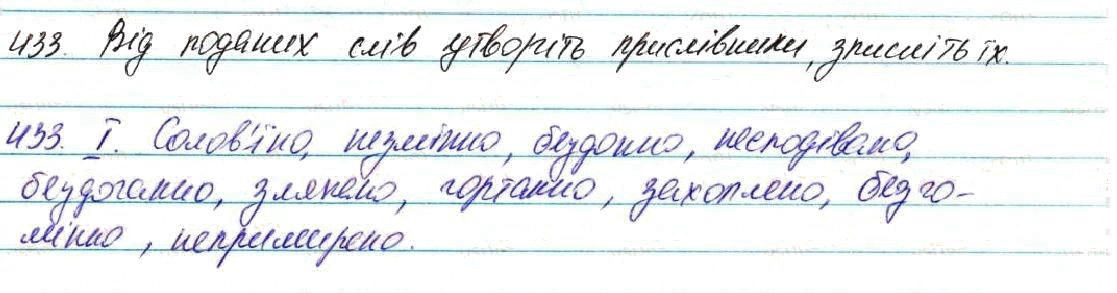 433. Від поданих слів утворіть прислівники, зпишіть їх.
433. I. Солов'їно, незмінно, бездонно, несподівано,
бездоганно, злякано, гортанно, захоплено, безго-
мінно, непримирено.